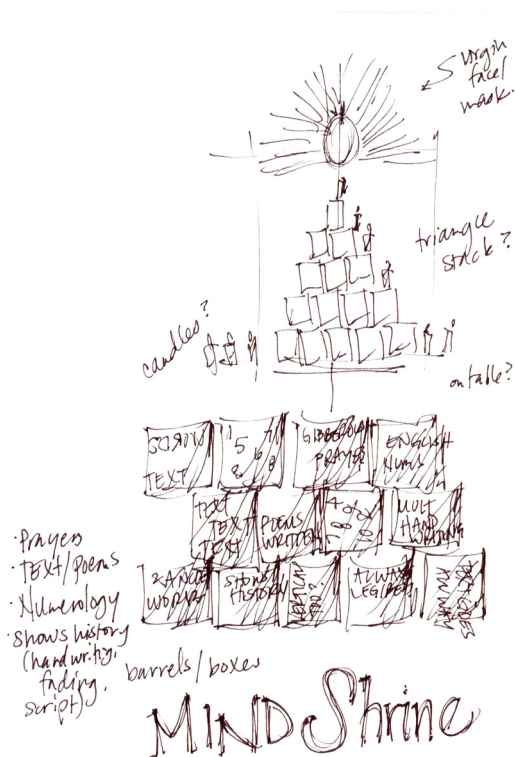 virgin
face/
mask.
triangle
stack?
candles?
on table?
WORDS
TEXT
5
GIBBERISH
PRAYER
ENGLISH
NUMS
TEXT
TEXT
TEXT
POEMS
WRITTEN
MULT
HAND
WRITING
WORDS
SHOWS
HISTORY
ALWAYS
LEGIBLE?
· Prayers
· TEXT/poems
· Numerology
· Shows history
(handwriting,
fading
script).
barrels/boxes
MIND Shrine